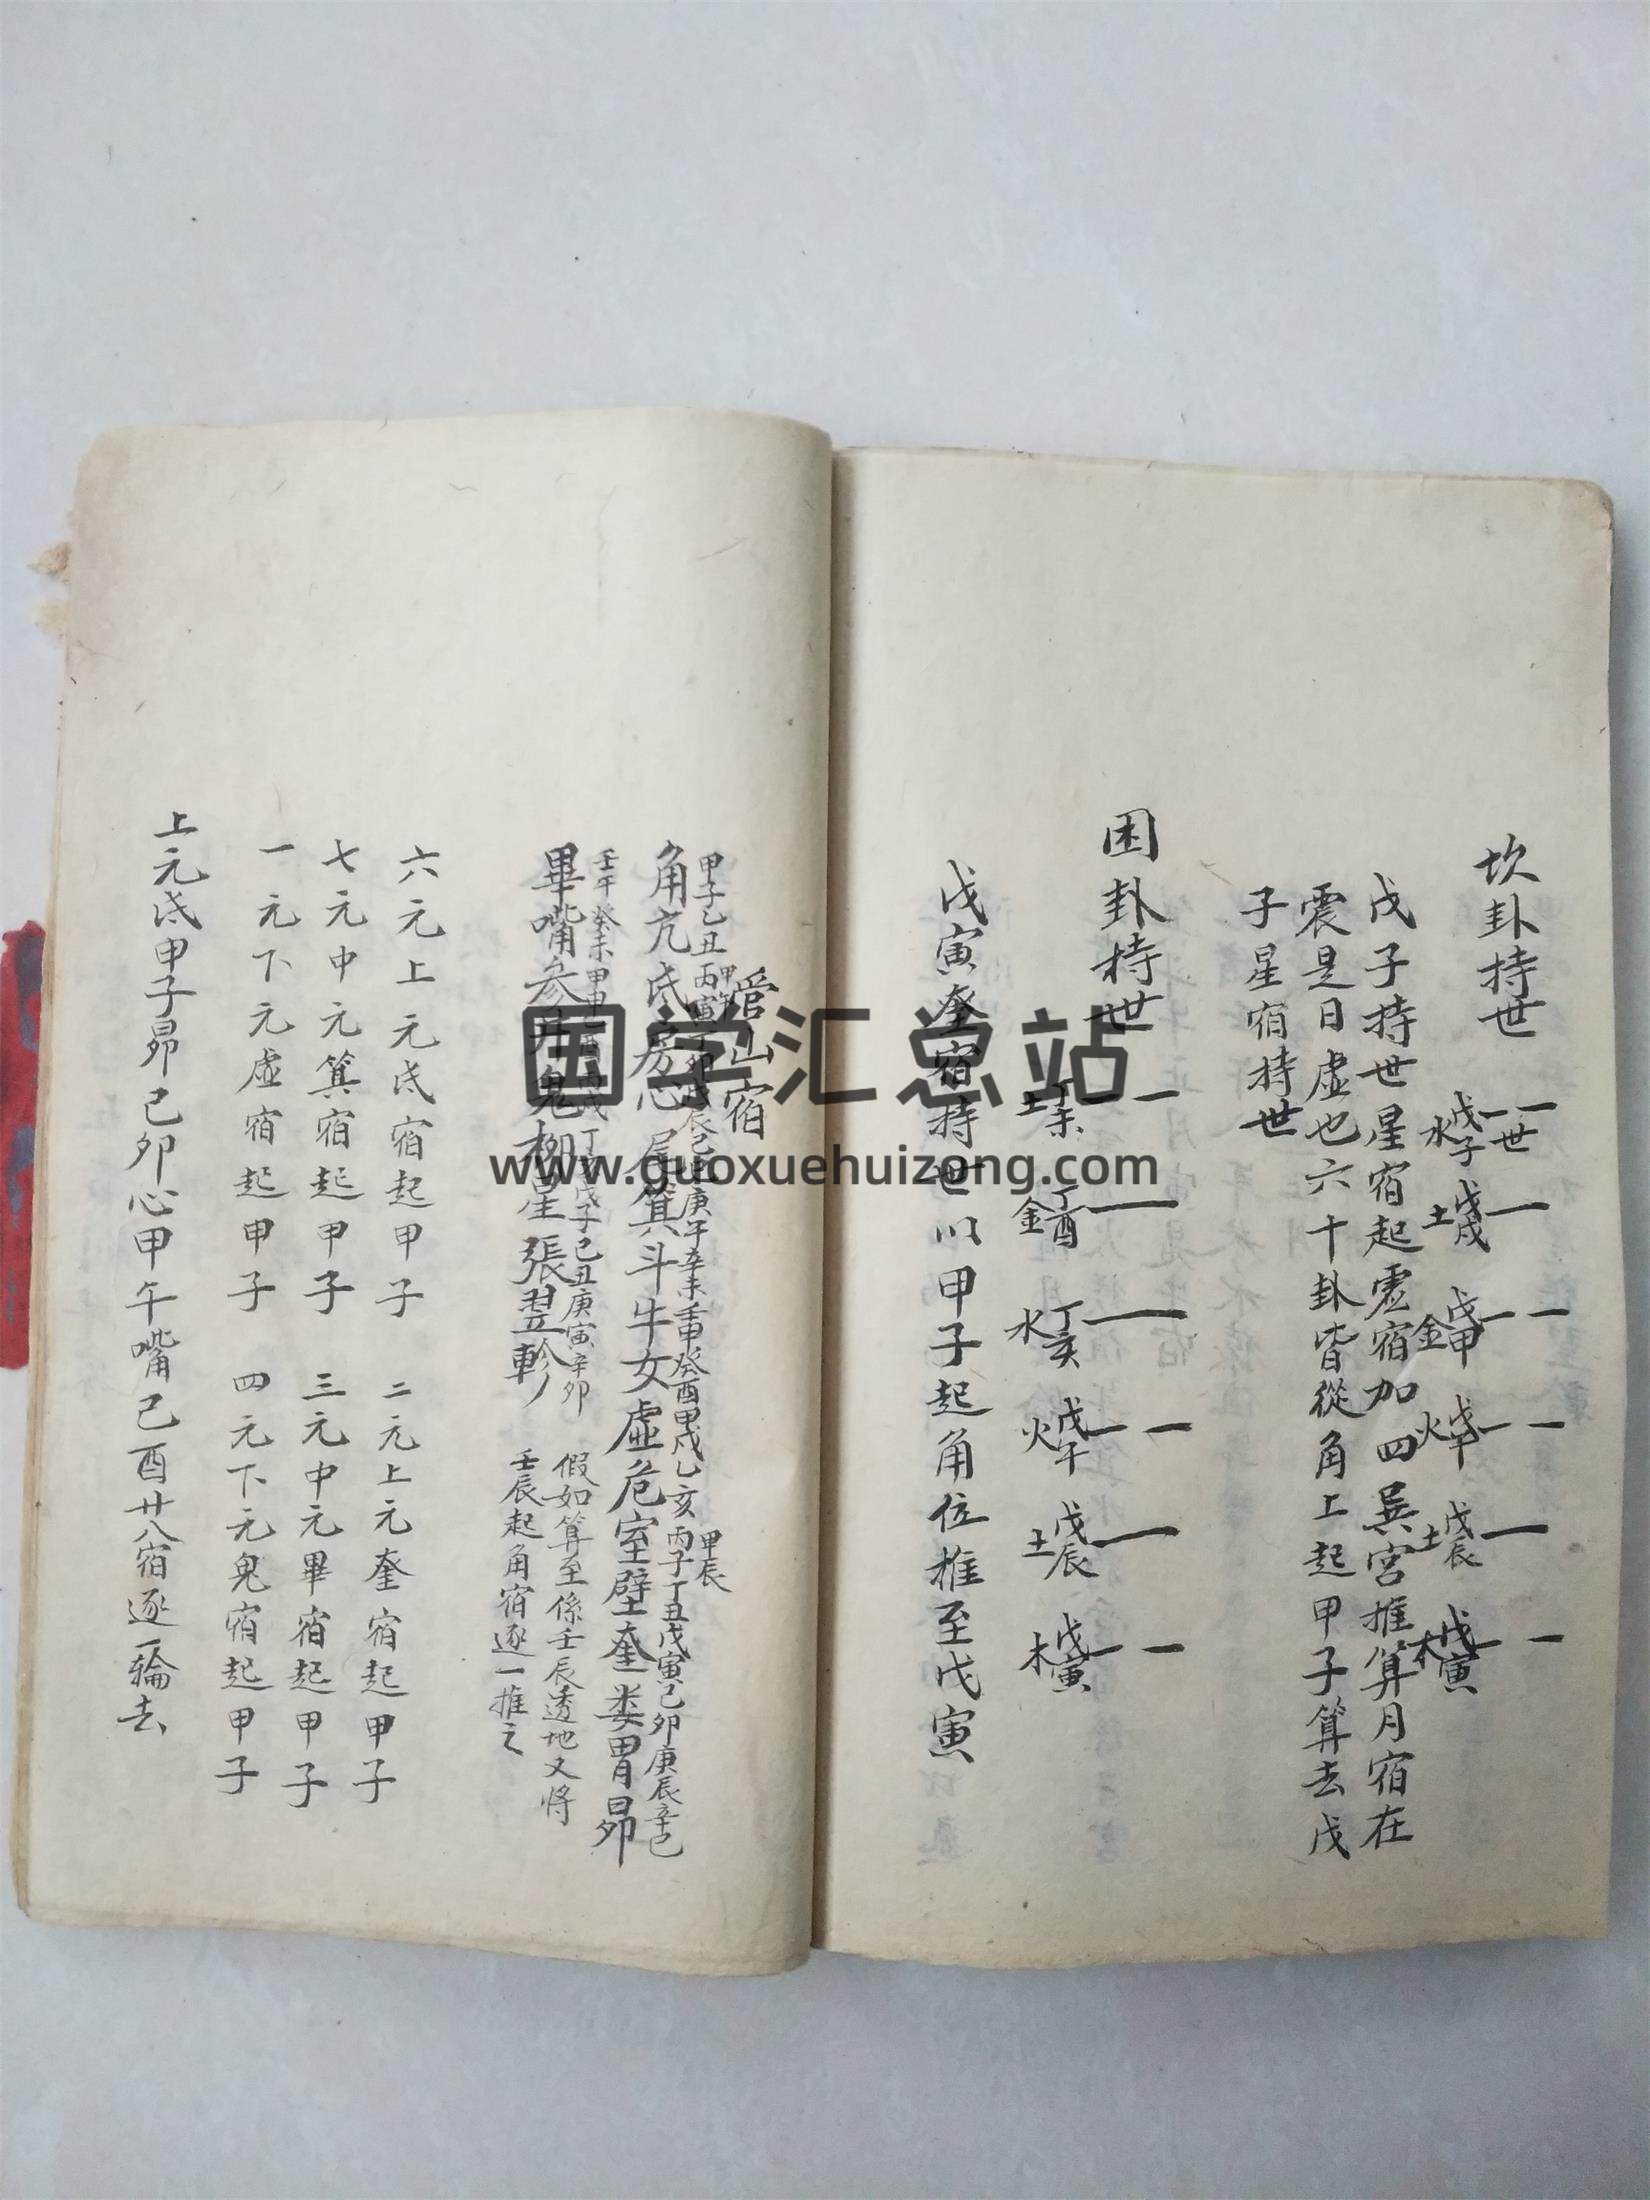 坎卦持世
戊子水 世
戊戌土
戊申金
戊午火
戊辰土
戊寅木
戊子持世星宿起虛宿加四巽宮推算月宿在
震是日虛也六十卦皆從角上起甲子算去戊
子星宿持世
困卦持世
丁未土
丁酉金
丁亥水
戊午火
戊辰土
戊寅木
戊寅奎宿持世以甲子起角位推至戊寅
管山宿
甲子乙丑丙寅丁卯戊辰己巳庚午辛未壬申癸酉甲戌乙亥丙子丁丑戊寅己卯庚辰辛巳
甲午
甲辰
角亢氐房心尾箕斗牛女虛危室壁奎娄胃昴
壬午癸未甲申乙酉丙戌丁亥戊子己丑庚寅辛卯
畢嘴参井鬼柳星張翌軫
假如算至係壬辰透地又将
壬辰起角宿逐一推之
六元上元氐宿起甲子 二元上元奎宿起甲子
七元中元箕宿起甲子 三元中元畢宿起甲子
一元下元虛宿起甲子 四元下元鬼宿起甲子
上元氐甲子昴己卯心甲午嘴己酉廿八宿逐一輪去
国学汇总站
www.guoxuehuizong.com